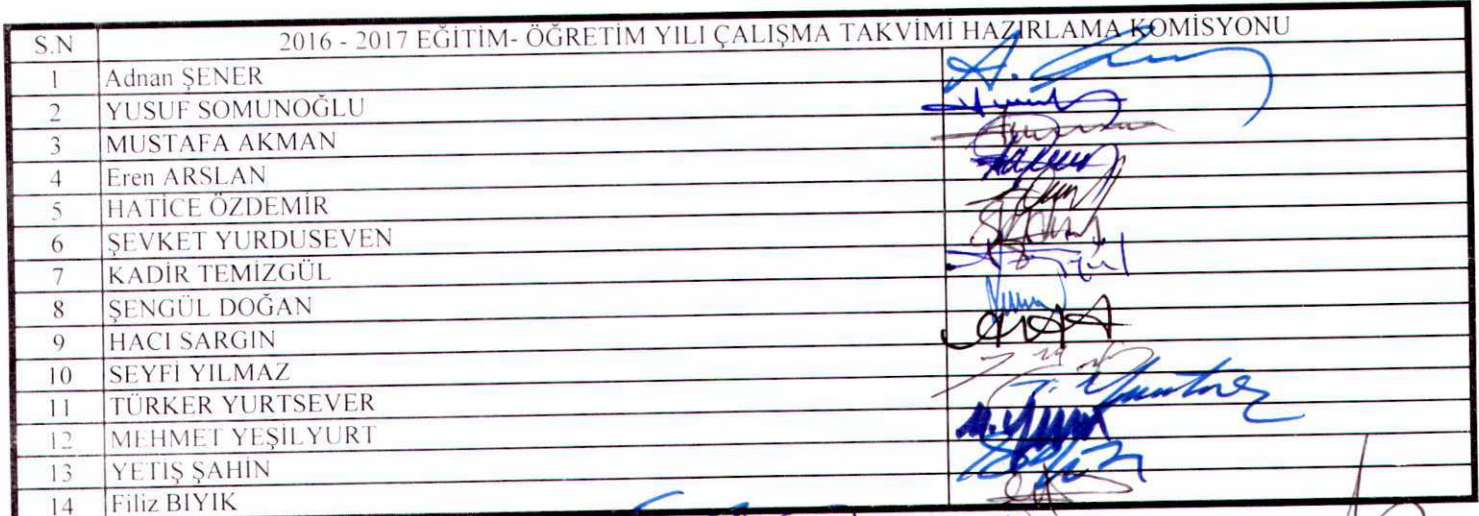 S.N 2016 - 2017 EĞİTİM- ÖĞRETİM YILI ÇALIŞMA TAKVİMİ HAZIRLAMA KOMİSYONU
1 Adnan ŞENER
2 YUSUF SOMUNOĞLU
3 MUSTAFA AKMAN
4 Eren ARSLAN
5 HATİCE ÖZDEMİR
6 ŞEVKET YURDUSEVEN
7 KADİR TEMİZGÜL
8 ŞENGÜL DOĞAN
9 HACI SARGIN
10 SEYFİ YILMAZ
11 TÜRKER YURTSEVER
12 MEHMET YEŞİLYURT
13 YETİŞ ŞAHİN
14 Filiz BIYIK